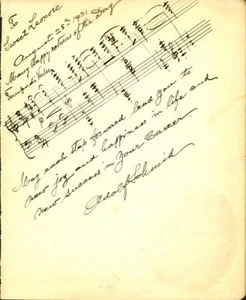 To
Sweet Leonore
August 25th 1931
Many happy returns of the Day
May each step forward lead you to
new joy and happiness in life and
new success in Your Career.
Adolf Schmid